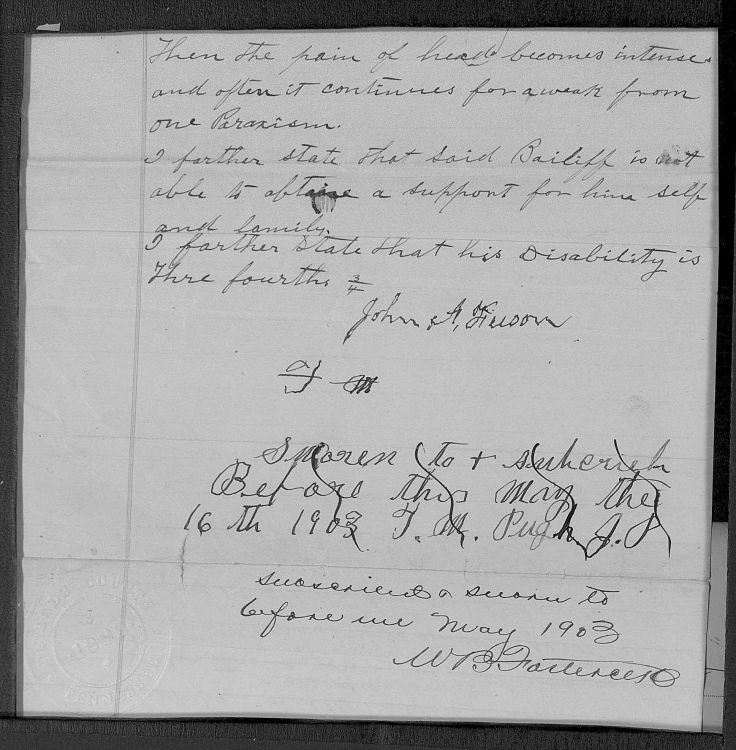 Then the pain of head becomes intense
and often it continues for a weak from
one Paraxism.
I farther state that said Bailiff is not
able to obtane a support for him self
and family.
I farther state that his Disability is
Thre fourths 3/4
John A,
Sworen to + subcrieb
Before this May the
16 th 1903 T. M. Pugh J. J
suoscribed & sworn to
before me May 1903
W B